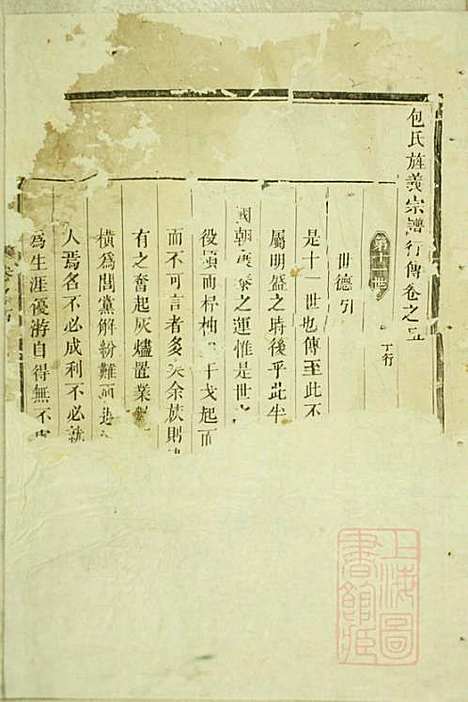 包氏旌義宗譜行傳卷之五
第十一世 丁行
世德引
是十一世也傳至此不
屬明盛之時後乎此半
國朝 之運惟是世之
役 而杼柚 干戈起而
而不可言者多矣余族則
有之奮起灰燼置業
橫為閭黨解紛難而
人焉名不必成利不必就
為生涯優游自得無不
上海圖書館藏